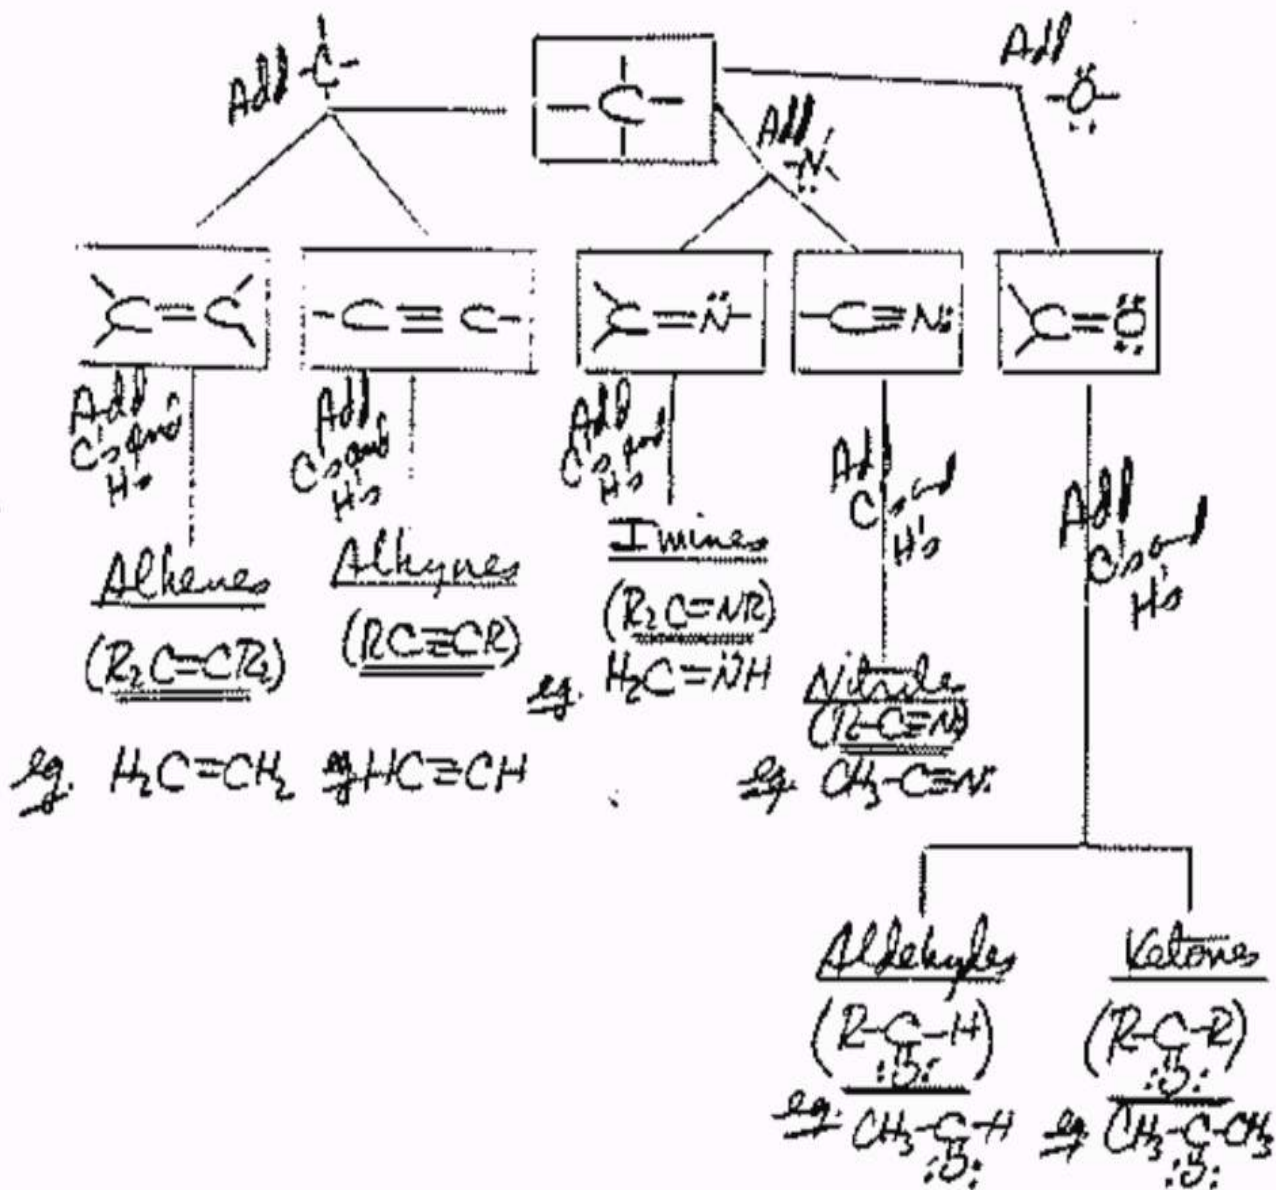 Add -C-
-C-
Add -N-
Add -Ö-
C=C
-C≡C-
C=N̈-
-C≡N:
C=Ö
Add
C's and
H's
Add
C's and
H's
Add
C's and
H's
Add
C's and
H's
Add
C's and
H's
Alkenes
(R₂C=CR₂)
eg. H₂C=CH₂
Alkynes
(RC≡CR)
eg HC≡CH
Imines
(R₂C=NR)
eg. H₂C=N̈H
Nitrile
(R-C≡N)
eg. CH₃-C≡N:
Aldehydes
(R-C-H)
:O:
eg. CH₃-C-H
:O:
Ketones
(R-C-R)
:O:
eg. CH₃-C-CH₃
:O: